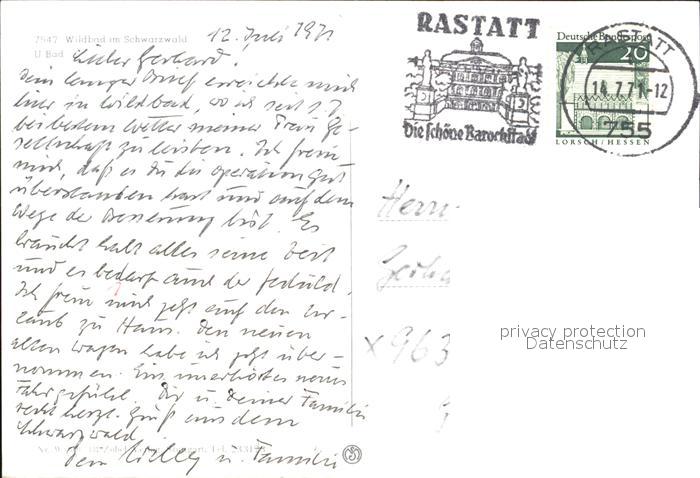 7547 Wildbad im Schwarzwald
U Bad
12. Juli 1971
Lieber Gerhard!
Dein langer Brief erreichte mich
hier in Wildbad, wo ich seit 1.7.
bei bestem Wetter meiner Frau Ge-
sellschaft zu leisten. Ich freue
mich, daß es Du die Operation gut
überstanden hast und auf dem
Wege der Besserung bist. Es
braucht halt alles seine Zeit
und es bedarf auch der Geduld.
Ich freue mich jetzt auf den Ur-
laub zu Haus. Den neuen
alten Wagen habe ich jetzt über-
nommen. Ein unerhörtes neues
Fahrgefühl. Dir u. Deiner Familie
recht herzl. Gruß aus dem
Schwarzwald
Dein u. Familie
RASTATT
Die schöne Barockstadt
Deutsche Bundespost
20
LORSCH/HESSEN
RASTATT
14.7.71-12
755
Herrn
Gerha
x 963
privacy protection
Datenschutz